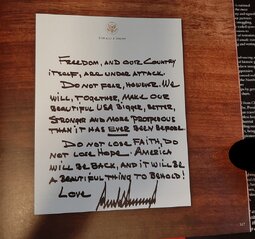 FREEDOM, AND OUR COUNTRY
ITSELF, ARE UNDER ATTACK.
DO NOT FEAR, HOWEVER. WE
WILL, TOGETHER, MAKE OUR
BEAUTIFUL USA BIGGER, BETTER,
STRONGER AND MORE PROSPEROUS
THAN IT HAS EVER BEEN BEFORE
DO NOT LOSE FAITH, DO
NOT LOSE HOPE. AMERICA
WILL BE BACK, AND IT WILL BE
A BEAUTIFUL THING TO BEHOLD!
LOVE